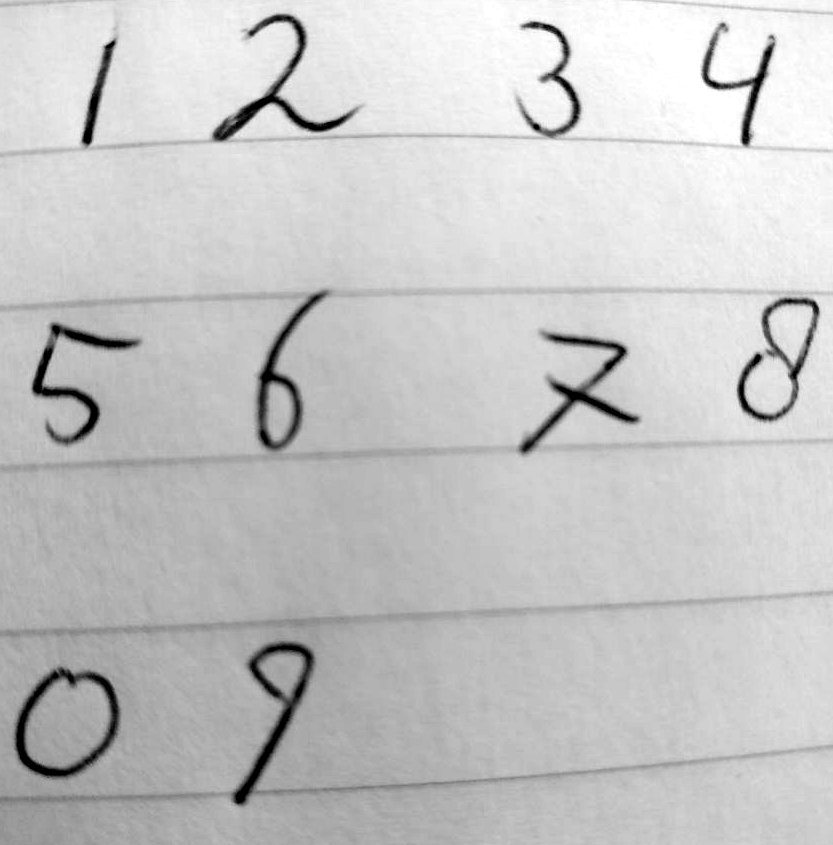 1 2 3 4
5 6 7 8
0 9